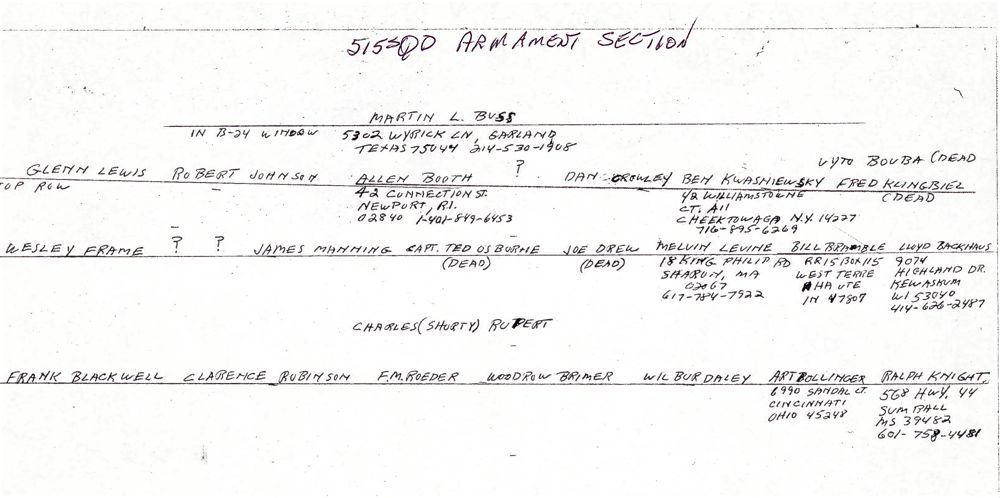 515 SQD ARMAMENT SECTION
MARTIN L. BUSS
IN B-24 WINDOW 5302 WYRICK LN, GARLAND
TEXAS 75044 214-530-1908
?
VYTO BOUBA (DEAD
GLENN LEWIS ROBERT JOHNSON ALLEN BOOTH DAN CROWLEY BEN KWASNIEWSKY FRED KLINGBIEL
TOP ROW 42 CONNECTION ST. 42 WILLIAMSTOWNE (DEAD
NEWPORT, RI. CT. A11
02840 1-401-849-6453 CHEEKTOWAGA N.Y. 14227
716-895-6269
WESLEY FRAME ? ? JAMES MANNING CAPT. TED OSBURNE JOE DREW MELVIN LEVINE BILL BRAMBLE LLOYD BACKHAUS
(DEAD) (DEAD) 18 KING PHILIP RD RR15 BOX 115 9074
SHARON, MA WEST TERRE HIGHLAND DR.
02067 HAUTE KEWASKUM
617-784-7922 IN 47807 WI 53040
414-626-2487
CHARLES (SHORTY) RUPERT
FRANK BLACKWELL CLARENCE ROBINSON F.M. ROEDER WOODROW BRIMER WILBUR DALEY ART BOLLINGER RALPH KNIGHT,
6990 SANDAL CT. 568 HWY. 44
CINCINNATI SUMRALL
OHIO 45248 MS 39482
601-758-4481